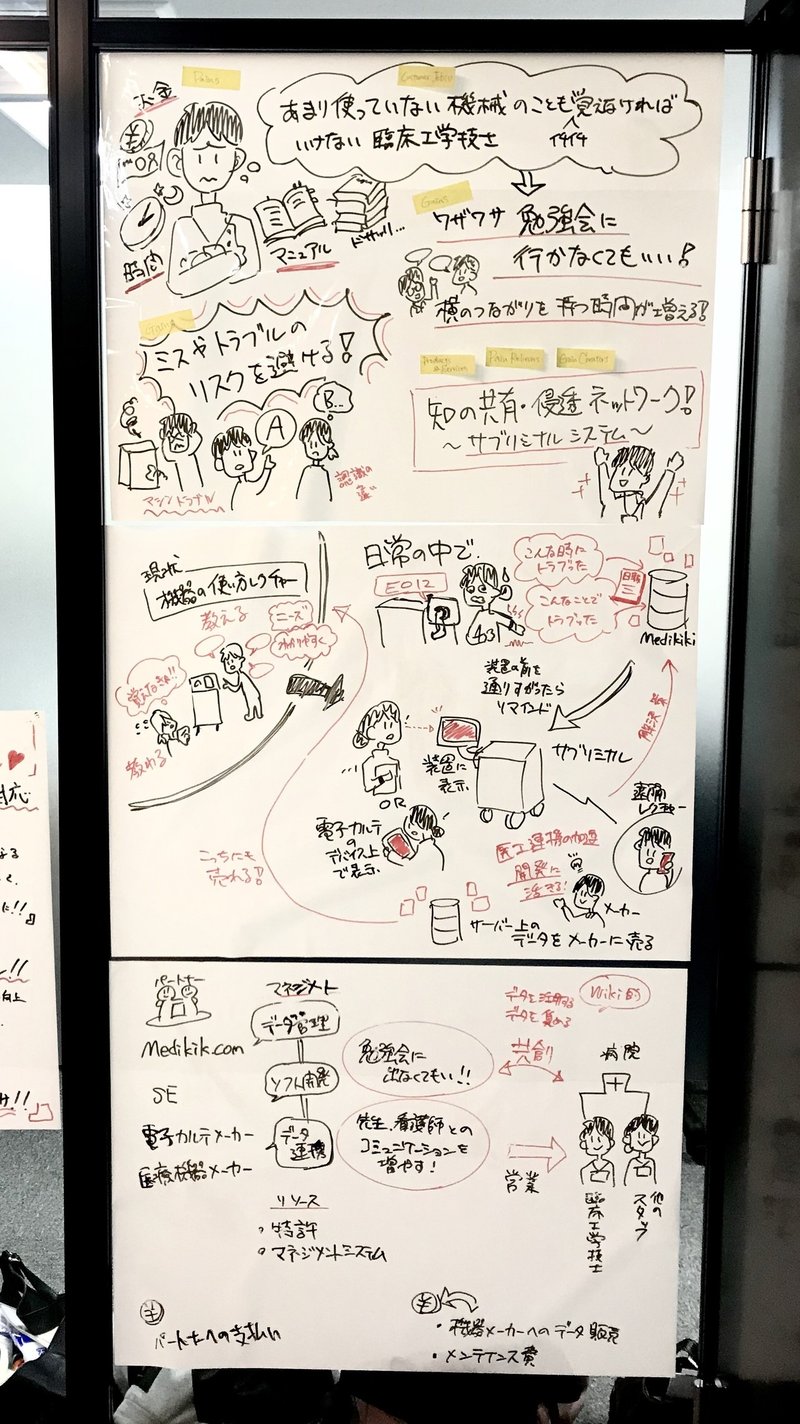 お金
Pains
Customer Jobs
あまり使っていない機械のことも覚えなければ
いけない臨床工学技士
イヤイヤ
¥
時間
マニュアル
ドサッ!!...
Gains
ワザワザ 勉強会に
行かなくてもいい!
横のつながりを持つ時間が増える!!
Gains
ミスやトラブルの
リスクを避ける!
A
B...
マシントラブル
認識の
違い
Products
& Services
Pain Relievers
Gain Creators
知の共有・侵透ネットワーク!
～サブリミナルシステム～
現状
機器の使い方レクチャー
教える
ニーズ
わかりやすく
覚えなきゃ!!
教わる
日常の中で
E012
こんな時に
トラブった
こんなことで
トラブった
日報
Medikiki
装置の前を
通りすがったら
リマインド
解決策
装置に
表示
サブリミナル
OR
電子カルテ
の
デバイス上
で表示
遠隔
レクチャー
こっちにも
売れる!!
医工連携の加速
開発に
活きる!
メーカー
サーバー上の
データをメーカーに売る
パートナー
Medikik.com
SE
電子カルテメーカー
医療機器メーカー
マネジメント
データ管理
ソフト開発
データ
連携
リソース
・特許
・マネジメントシステム
勉強会に
出なくてもいい!!
先生、看護師との
コミュニケーションを
増やす!
データを活用する
データを集める
Wiki的
共創
営業
病院
臨床工学技士
他の
スタッフ
¥
パートナーへの支払い
¥
・機器メーカーへのデータ販売
・メンテナンス費